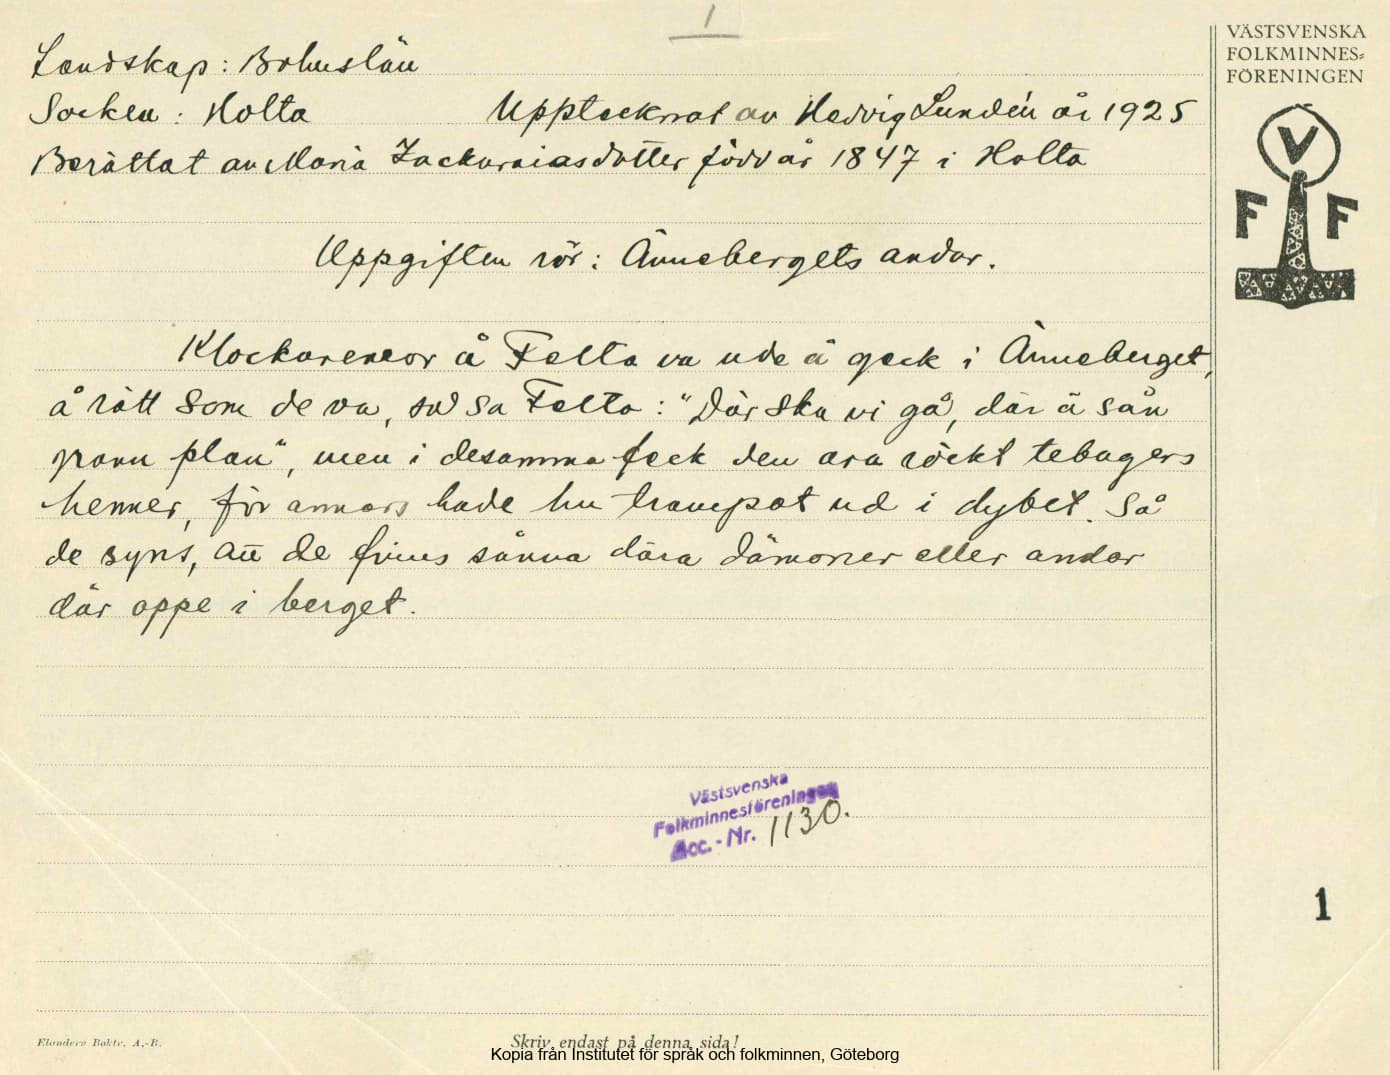 1
VÄSTSVENSKA
FOLKMINNES=
FÖRENINGEN
V
F F
Landskap: Bohuslän
Socken: Holta Upptecknat av Hedvig Lundén år 1925
Berättat av Maria Zackariasdotter född år 1847 i Holta
Uppgiften rör: Ännebergets andar.
Klockareneor å Felta va ude å geck i Änneberget,
å rätt som de va, så sa Felta: "Där ska vi gå, där ä sån
grann plan", men i desamma feck den ara röckt tebagers
henner, för annars hade hu trampat ud i dybet. Så
de syns, att de finns sånna dära dämoner eller andar
där oppe i berget.
Västsvenska
Folkminnesföreningen
Acc.-Nr. 1130.
1
Elanders Boktr. A.-B.
Skriv endast på denna sida!
Kopia från Institutet för språk och folkminnen, Göteborg